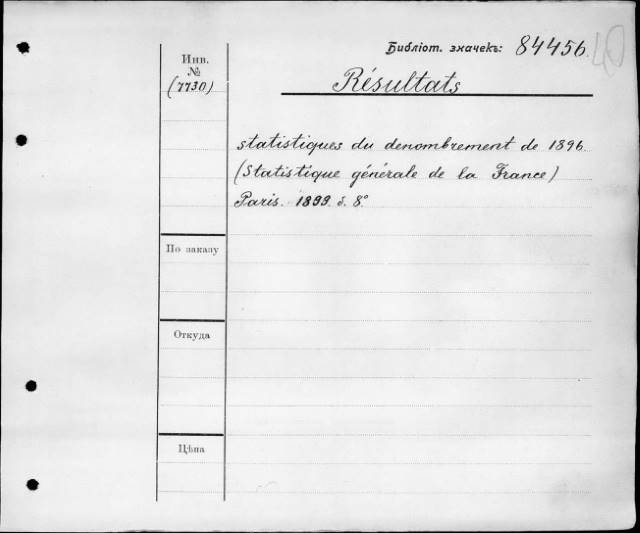 Библіот. значекъ: 84456.
40
Инв.
№
(7730)
Résultats
statistiques du denombrement de 1896.
(Statistique générale de la France)
Paris. 1899. 8°
По заказу
Откуда
Цѣна